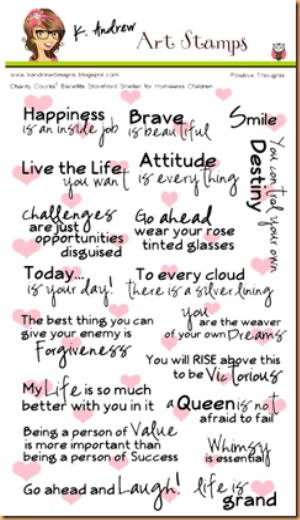 K. Andrew Art Stamps
www.kandrewdesigns.blogspot.com Positive Thoughts
Charity Counts! Benefits Storefront Shelter for Homeless Children
Happiness
is an inside job
Brave
is beautiful
Smile
You control your own
Destiny
Live the Life
you want
Attitude
is everything
challenges
are just
opportunities
disguised
Go ahead
wear your rose
tinted glasses
Today...
is your day!
To every cloud
there is a silver lining
The best thing you can
give your enemy is
Forgiveness
you
are the weaver
of your own Dreams
You will RISE above this
to be Victorious
My Life is so much
better with you in it
a Queen is not
afraid to fail
Being a person of Value
is more important than
being a person of Success
Whimsy
is essential
Go ahead and Laugh!
life is
grand